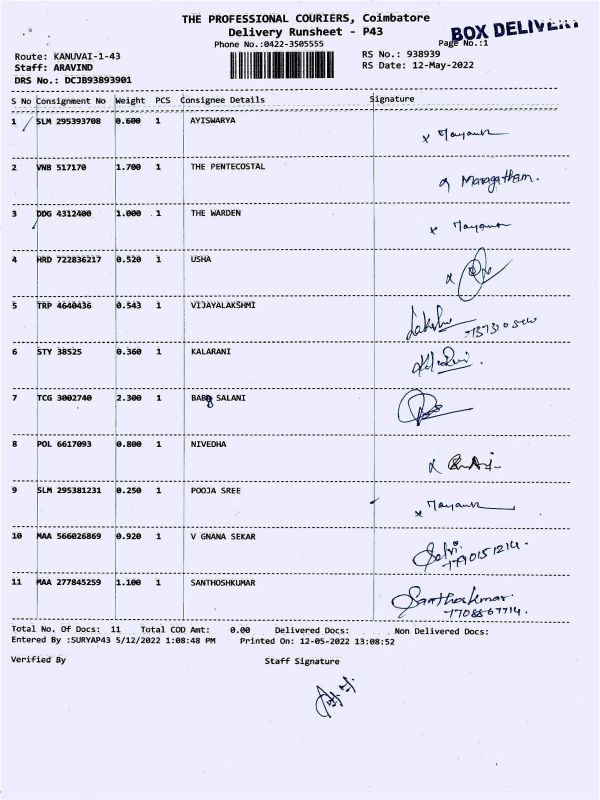 THE PROFESSIONAL COURIERS, Coimbatore
Delivery Runsheet - P43
BOX DELIVERY
Phone No.:0422-3505555
Page No.:1
Route: KANUVAI-1-43
RS No.: 938939
Staff: ARAVIND
RS Date: 12-May-2022
DRS No.: DCJB93893901
S No Consignment No Weight PCS Consignee Details Signature
1 SLM 295393708 0.600 1 AYISWARYA
2 VNB 517170 1.700 1 THE PENTECOSTAL Maragatham.
3 DDG 4312400 1.000 1 THE WARDEN
4 HRD 722836217 0.520 1 USHA
5 TRP 4640436 0.543 1 VIJAYALAKSHMI
6 STY 38525 0.360 1 KALARANI
7 TCG 3002740 2.300 1 SALANI
8 POL 6617093 0.800 1 NIVEDHA
9 SLM 295381231 0.250 1 POOJA SREE
10 MAA 566026869 0.920 1 V GNANA SEKAR Selvi
11 MAA 277845259 1.100 1 SANTHOSHKUMAR Santhoskumar
Total No. Of Docs: 11 Total COD Amt: 0.00 Delivered Docs: Non Delivered Docs:
Entered By :SURYAP43 5/12/2022 1:08:48 PM Printed On: 12-05-2022 13:08:52
Verified By Staff Signature